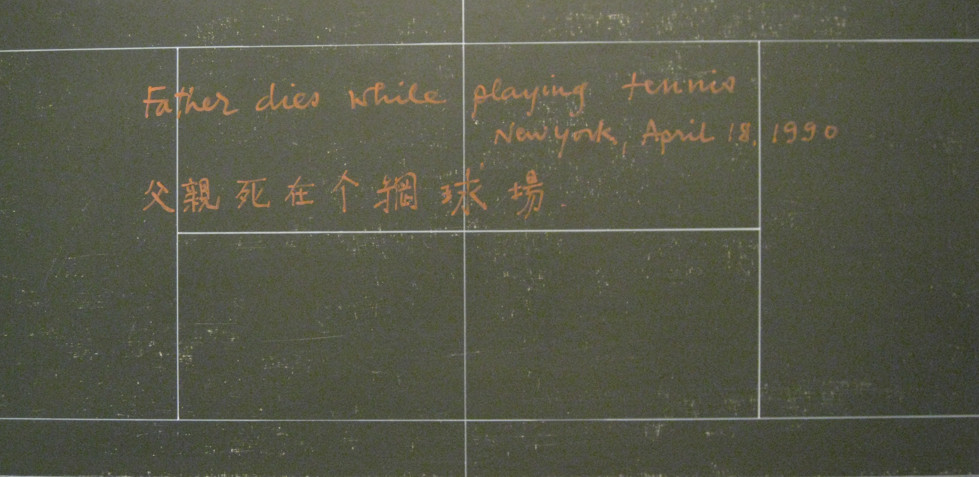 Father dies while playing tennis
New York, April 18, 1990
父親死在个掆球場.